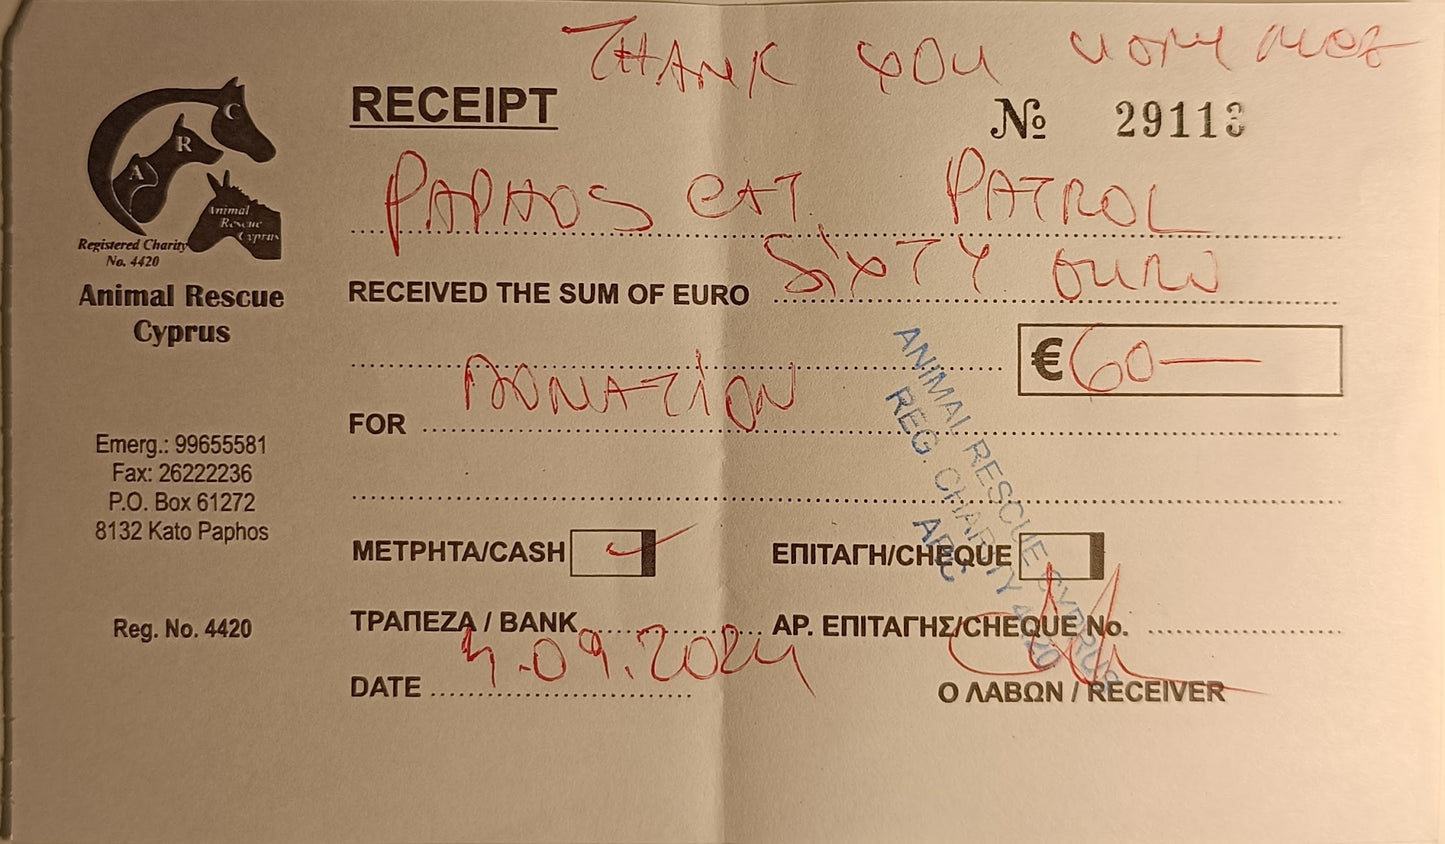 THANK YOU
RECEIPT
№ 29113
C
R
A
Animal
Rescue
Cyprus
Registered Charity
No. 4420
Animal Rescue
Cyprus
PAPHOS CAT PATROL
RECEIVED THE SUM OF EURO SiXTY EURO
€ 60—
FOR DONATiON
Emerg.: 99655581
Fax: 26222236
P.O. Box 61272
8132 Kato Paphos
Reg. No. 4420
ΜΕΤΡΗΤΑ/CASH
ΕΠΙΤΑΓΗ/CHEQUE
ΤΡΑΠΕΖΑ / BANK
ΑΡ. ΕΠΙΤΑΓΗΣ/CHEQUE No.
DATE 4.09.2024
Ο ΛΑΒΩΝ / RECEIVER
ANIMAL RESCUE CYPRUS
REG. CHARITY 4420
ARC